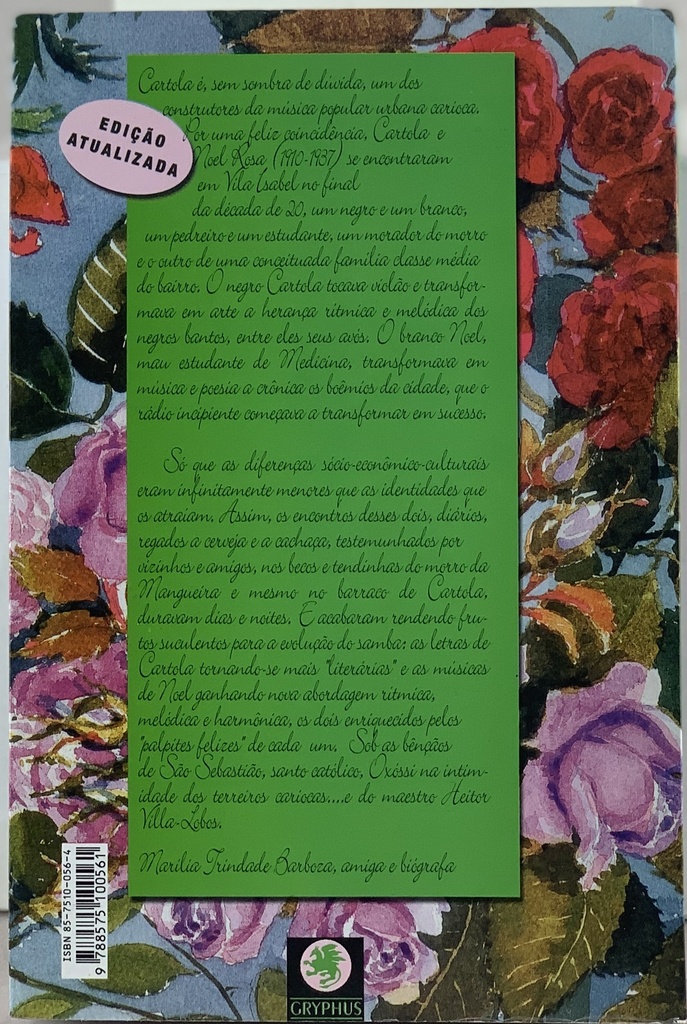 Cartola é, sem sombra de dúvida, um dos
construtores da música popular urbana carioca.
EDIÇÃO
ATUALIZADA
Por uma feliz coincidência, Cartola e
Noel Rosa (1910-1937) se encontraram
em Vila Isabel no final
da década de 20, um negro e um branco,
um pedreiro e um estudante, um morador do morro
e o outro de uma conceituada família classe média
do bairro. O negro Cartola tocava violão e transfor-
mava em arte a herança rítmica e melódica dos
negros bantos, entre eles seus avós. O branco Noel,
mau estudante de Medicina, transformava em
música e poesia a crônica os boêmios da cidade, que o
rádio incipiente começava a transformar em sucesso.
Só que as diferenças sócio-econômico-culturais
eram infinitamente menores que as identidades que
os atraíam. Assim, os encontros desses dois, diários,
regados a cerveja e a cachaça, testemunhados por
vizinhos e amigos, nos becos e tendinhas do morro da
Mangueira e mesmo no barraco de Cartola,
duravam dias e noites. E acabaram rendendo fru-
tos suculentos para a evolução do samba: as letras de
Cartola tornando-se mais "literárias" e as músicas
de Noel ganhando nova abordagem rítmica,
melódica e harmônica, os dois enriquecidos pelos
"palpites felizes" de cada um. Sob as bênçãos
de São Sebastião, santo católico, Oxóssi na intim-
idade dos terreiros cariocas....e do maestro Heitor
Villa-Lobos.
Marília Trindade Barboza, amiga e biógrafa
ISBN 85-7510-056-4
9 788575 100561
GRYPHUS